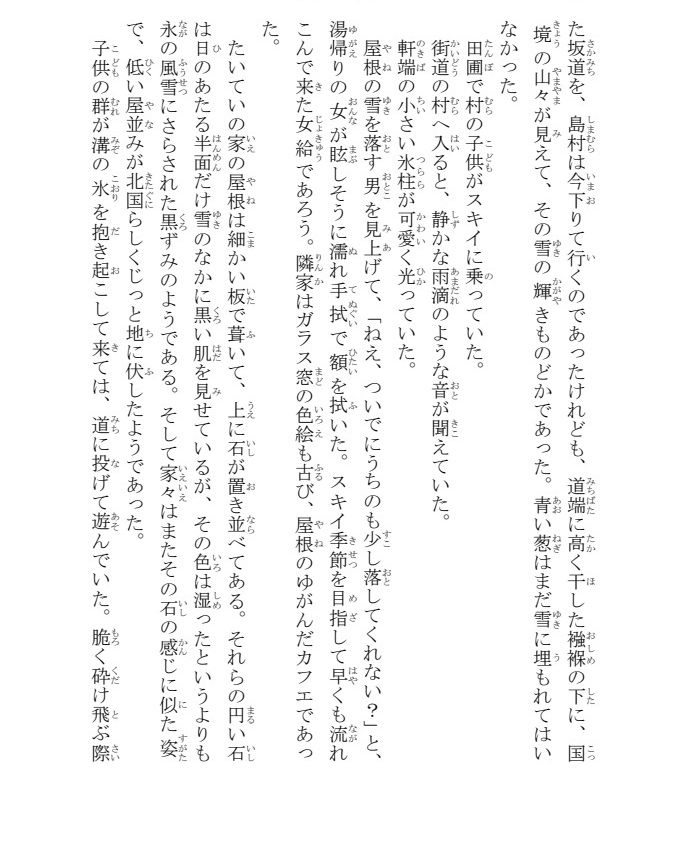 た坂道を、島村は今下りて行くのであったけれども、道端に高く干した襁褓の下に、国
境の山々が見えて、その雪の輝きものどかであった。青い葱はまだ雪に埋もれてはい
なかった。
田圃で村の子供がスキイに乗っていた。
街道の村へ入ると、静かな雨滴のような音が聞えていた。
軒端の小さい氷柱が可愛く光っていた。
屋根の雪を落す男を見上げて、「ねえ、ついでにうちのも少し落してくれない？」と、
湯帰りの女が眩しそうに濡れ手拭で額を拭いた。スキイ季節を目指して早くも流れ
こんで来た女給であろう。隣家はガラス窓の色絵も古び、屋根のゆがんだカフエであっ
た。
たいていの家の屋根は細かい板で葺いて、上に石が置き並べてある。それらの円い石
は日のあたる半面だけ雪のなかに黒い肌を見せているが、その色は湿ったというよりも
永の風雪にさらされた黒ずみのようである。そして家々はまたその石の感じに似た姿
で、低い屋並みが北国らしくじっと地に伏したようであった。
子供の群が溝の氷を抱き起こして来ては、道に投げて遊んでいた。脆く砕け飛ぶ際